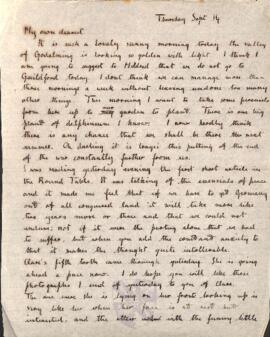 Thursday Sept 14
My own dearest
It is such a lovely sunny morning today the valley
of Godalming is looking so golden with light I think I
am going to suggest to Mildred that we do not go to
Guildford today I dont think we can manage more than
three mornings a week without leaving undone too many
other things. This morning I want to take some perennials
from here up to garden to plant. There is one big
plant of delphinium I know. I now hardly think
there is any chance that we shall be there the next
summer. Oh darling it is longer this putting of the end
of the war constantly further from us.
I was reading yesterday evening the first short article in
the Round Table. It was talking of the essentials of peace
and it made me feel that if we have to get Germany
out of all conquered land it will take more like
two years more or three and that we could not
endure; not if it were the parting alone that we had
to suffer, but when you add the constant anxiety to
that it makes the thought quite intolerable.
Clare's fifth tooth came through yesterday. She is going
ahead a pace now. I do hope you will like those
photographs I send of yesterday to you of Clare.
The one where she is lying on her front looking up is
very like her when her face is at rest but
interested, and the other with the funny little